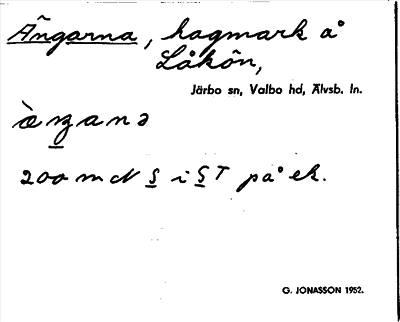 Ängarna, hagmark å
Låkön,
Järbo sn, Valbo hd, Älvsb. ln.
200 m N S i ST på ek.
G. JONASSON 1952.